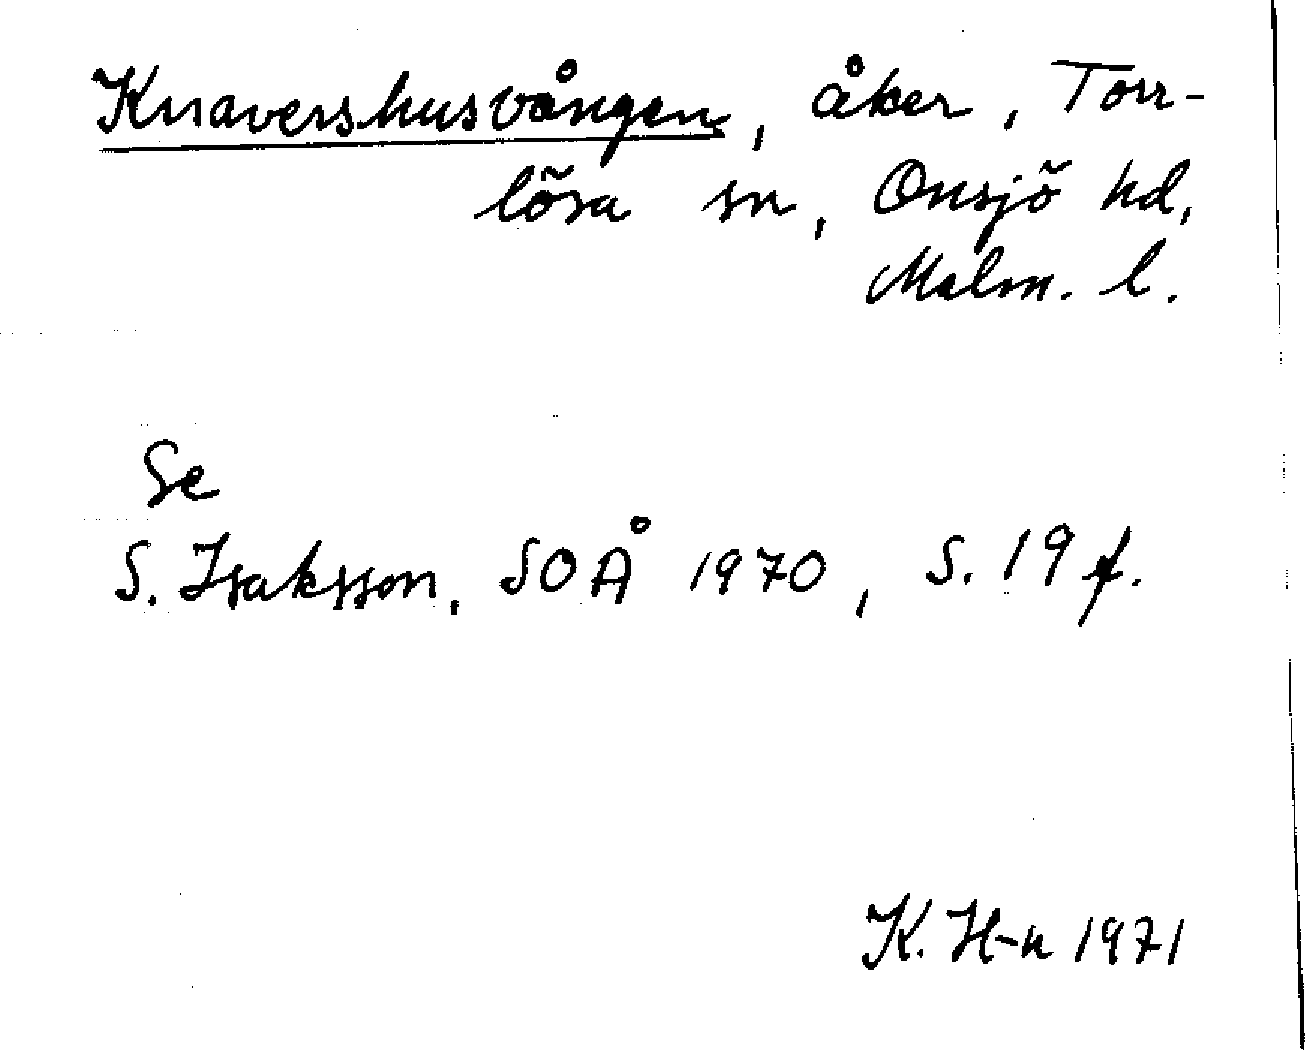 Knavershusvången, åker, Torr-
lösa sn, Onsjö hd,
Malm. l.
Se
S. Isaksson, SOÅ 1970, s. 19 f.
K. H-n 1971